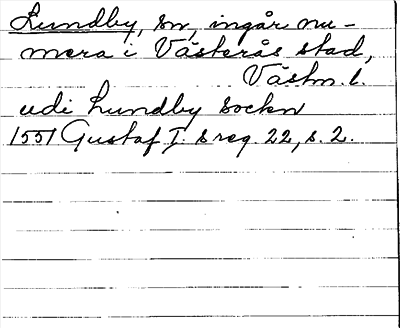 Lundby, sn, ingår nu-
mera i Västerås stad,
Västm. l.
udi Lundby sockn
1551 Gustaf I:s reg. 22, s. 2.